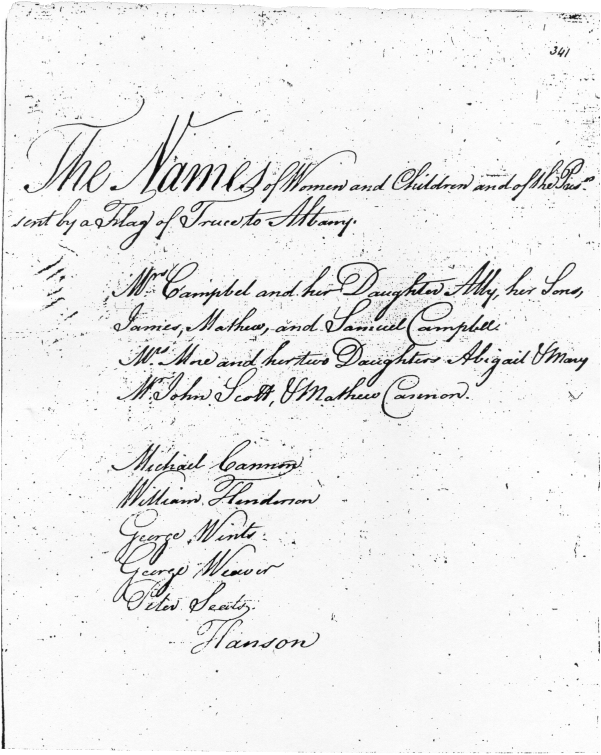 341
The Names of Women and Children and of the Pris.rs
sent by a Flag of Truce to Albany.
Mrs Campbel and her Daughter Ally, her Sons,
James, Mathew, and Samuel Campbell.
Mrs More and her two Daughters Abigail & Mary
Mr John Scott, & Mathew Cannon.
Michael Cannon
William Henderson
George Wints.
George Weaver
Peter Seats.
Hanson